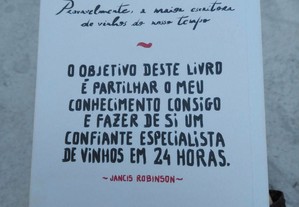 Provavelmente, a maior escritora
de vinhos do nosso tempo
~
O OBJETIVO DESTE LIVRO
É PARTILHAR O MEU
CONHECIMENTO CONSIGO
E FAZER DE SI UM
CONFIANTE ESPECIALISTA
DE VINHOS EM 24 HORAS.
~JANCIS ROBINSON~